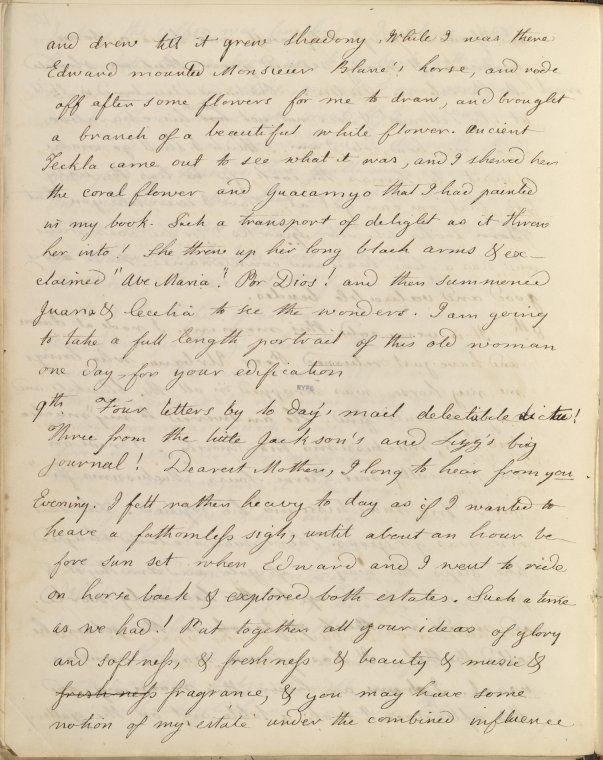 and drew till it grew shadowy. While I was there
Edward mounted Monsieur Blane's horse, and rode
off after some flowers for me to draw, and brought
a branch of a beautiful white flower. Ancient
Teckla came out to see what it was, and I shewed her
the coral flower and Guacamyo that I had painted
in my book. Such a transport of delight as it threw
her into! She threw up her long black arms & ex-
claimed "Ave Maria"! Por Dios! and then summoned
Juana & Cecelia to see the wonders. I am going
to take a full length portrait of this old woman
one day for your edification
NYPL
9th Four letters by to day's mail delectabile dictu!
Three from the little Jackson's and Lizzy's big
journal! Dearest Mother, I long to hear from you.
Evening. I felt rather heavy to day as if I wanted to
heave a fathomless sigh, until about an hour be-
fore sun set when Edward and I went to ride
on horse back & explored both estates. Such a time
as we had! Put together all your ideas of glory
and softness, & freshness & beauty & music &
freshness fragrance, & you may have some
notion of my estate under the combined influence